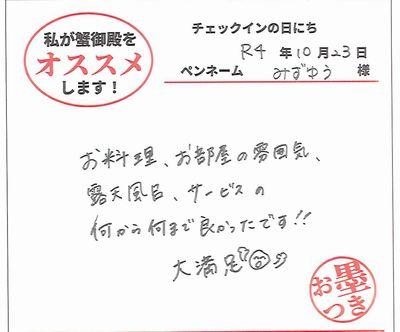 私が蟹御殿を
オススメ
します！
チェックインの日にち
R4 年 10 月 23 日
ペンネーム みずゆう 様
お料理、お部屋の雰囲気、
露天風呂、サービスの
何から何まで良かったです!!
大満足
お墨つき